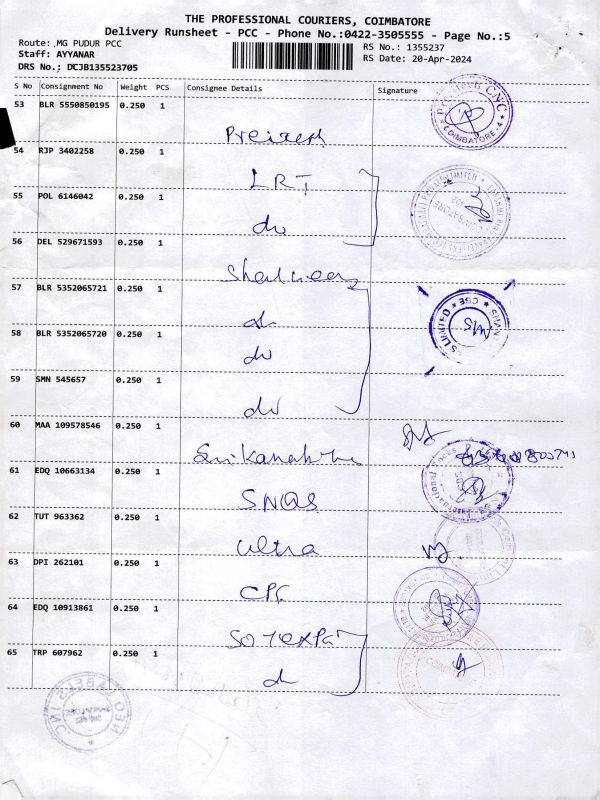 THE PROFESSIONAL COURIERS, COIMBATORE
Delivery Runsheet - PCC - Phone No.:0422-3505555 - Page No.:5
Route: MG PUDUR PCC
RS No.: 1355237
Staff: AYYANAR
RS Date: 20-Apr-2024
DRS No.; DCJB135523705
S No Consignment No Weight PCS Consignee Details Signature
53 BLR 5550850195 0.250 1
COIMBATORE-4
54 RJP 3402258 0.250 1
LRT
55 POL 6146042 0.250 1
do
56 DEL 529671593 0.250 1
57 BLR 5352065721 0.250 1
do
58 BLR 5352065720 0.250 1
do
59 SMN 545657 0.250 1
do
60 MAA 109578546 0.250 1
61 EDQ 10663134 0.250 1
SNQS
62 TUT 963362 0.250 1
Ultra
63 DPI 262101 0.250 1
CPC
64 EDQ 10913861 0.250 1
65 TRP 607962 0.250 1
d
NEO LABELS INC.